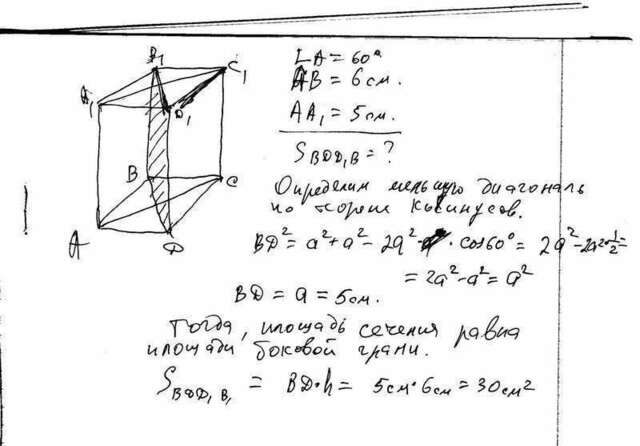 B₁
C₁
A₁
D₁
B
C
A
D
∠A = 60°
AB = 6см.
AA₁ = 5см.
S BDD₁B = ?
Определим меньшую диагональ
по теореме косинусов.
BD² = a² + a² − 2a² · cos60° = 2a² − 2a²·½ =
= 2a² − a² = a²
BD = a = 5см.
Тогда, площадь сечения равна
площади боковой грани.
S BDD₁B₁ = BD·h = 5см·6см = 30см²